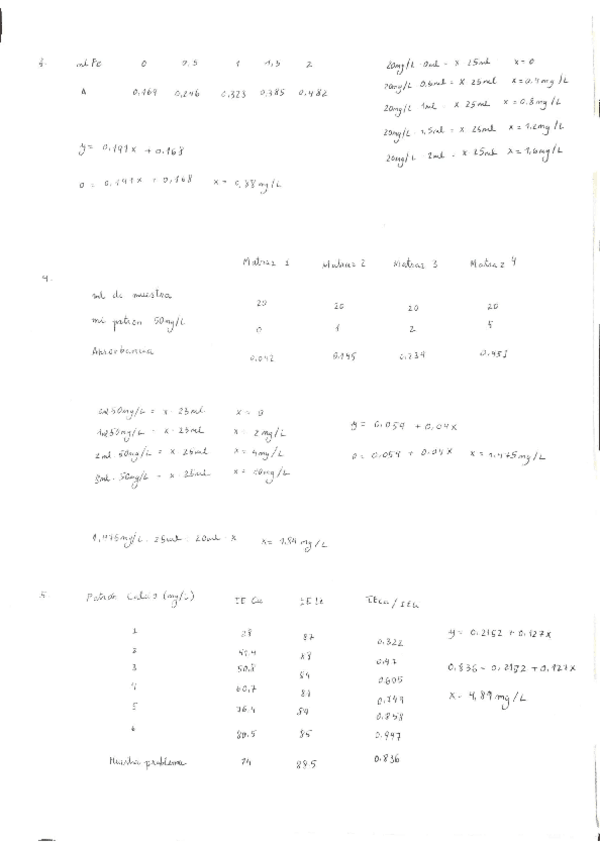 3. ml Pb 0 0,5 1 1,5 2
A 0.169 0,246 0.323 0,385 0,482
20mg/L · 0ml = x · 25ml x=0
20mg/L · 0.5ml = x · 25ml x=0.4mg/L
20mg/L · 1ml = x · 25ml x=0.8mg/L
20mg/L · 1,5ml = x · 25ml x=1,2mg/L
20mg/L · 2ml = x · 25ml x=1,6mg/L
y= 0.191x + 0.168
0 = 0.191x + 0,168 x= 0,88mg/L
4. Matraz 1 Matraz 2 Matraz 3 Matraz 4
ml de muestra 20 20 20 20
ml patron 50mg/L 0 1 2 5
Absorbancia 0.145 0.453
50mg/L = x · 25ml x= 0
1ml 50mg/L = x · 25ml x= 2mg/L
2ml · 50mg/L = x · 25ml x= 4mg/L
5ml · 50mg/L = x · 25ml x= 10mg/L
y= 0.059 + 0.04x
0= 0.059 + 0.04x x= 1.475mg/L
1,475mg/L · 25ml = 20ml · x x= 1.84mg/L
5. Patrón Calcio (mg/L) IE Ca
1 28 87 0.322
2 0.47
3 50,8 84 0.605
4 60,7
5 84 0.858
6 80.5 85 0.947
Muestra problema 74 88.5 0.836
y= 0.2152 + 0.127x
0.836 = 0.2152 + 0,127x
x= 4,89mg/L